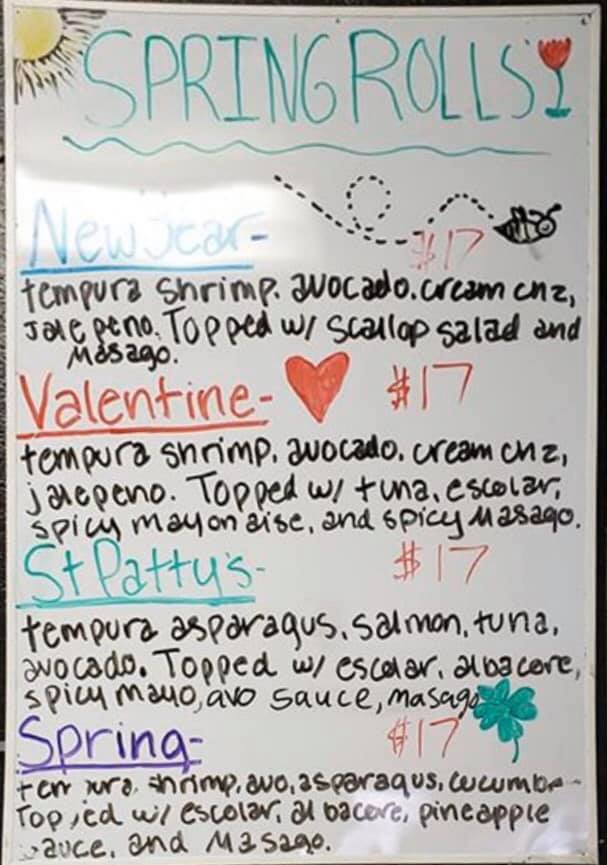 SPRING ROLLS
New Year-
$17
tempura shrimp. avocado. cream chz,
Jalepeno. Topped w/ scallop salad and
Masago.
Valentine- $17
tempura shrimp. avocado. cream chz,
jalepeno. Topped w/ tuna, escolar,
spicy mayonaise, and spicy Masago.
St Patty's- $17
tempura asparagus, salmon, tuna,
avocado. Topped w/ escolar, albacore,
spicy mayo, avo sauce, masago
Spring- $17
tempura shrimp, avo, asparagus, cucumber
Topped w/ escolar, albacore, pineapple
sauce, and Masago.